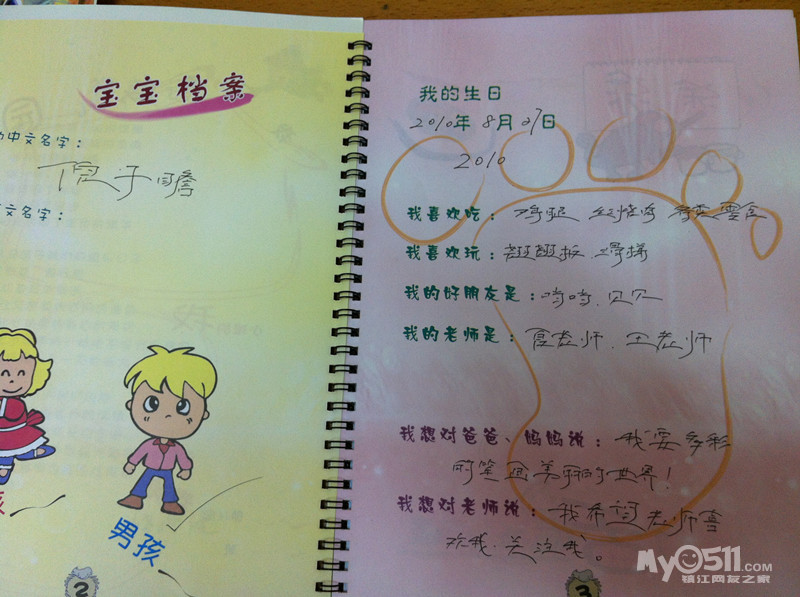 宝宝档案
中文名字：
子瞻
文名字：
孩
男孩
2
我的生日
2010年8月27日
2010
我喜欢吃：鸡腿 红烧鸡
我喜欢玩：跷跷板 滑梯
我的好朋友是：鸣鸣、贝贝
我的老师是：夏老师、王老师
我想对爸爸、妈妈说：我要多彩
的笔画美丽的世界！
我想对老师说：我希望老师喜
欢我、关注我。
3
My0511.com
镇江网友之家